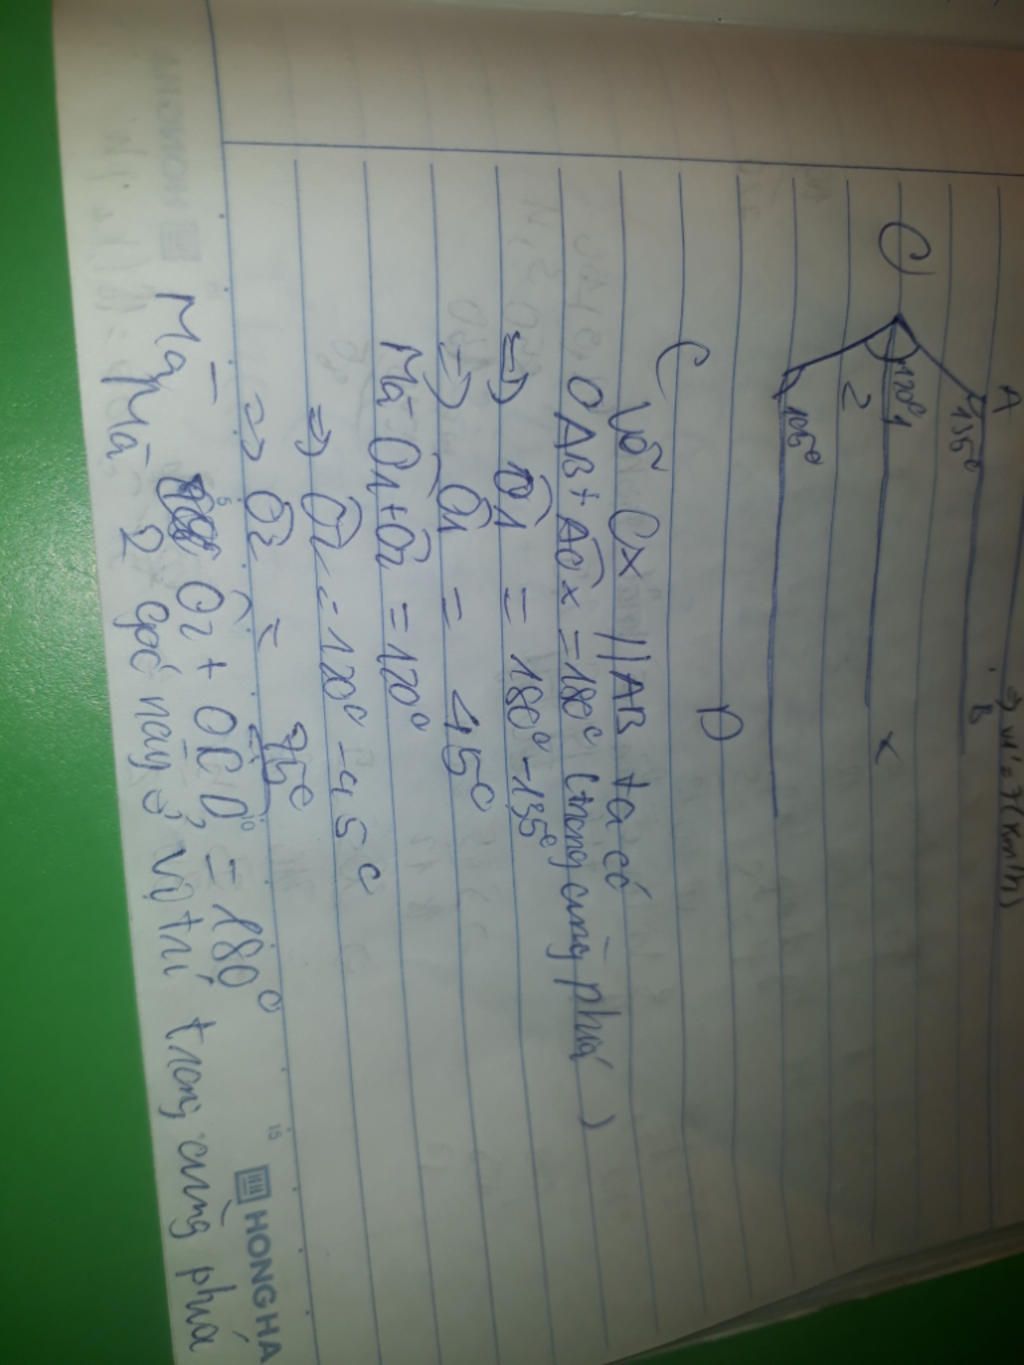 A
B
O
135°
120°
1
2
x
105°
C
D
Vẽ Ox // AB ta có
OAB + AOx = 180° (trong cùng phía)
=> O1 = 180° - 135°
=> O1 = 45°
Mà O1 + O2 = 120°
=> O2 = 120° - 45°
=> O2 = 75°
Mà O2 + OCD = 180°
Mà 2 góc này ở vị trí trong cùng phía
5 10 15
HONG HA